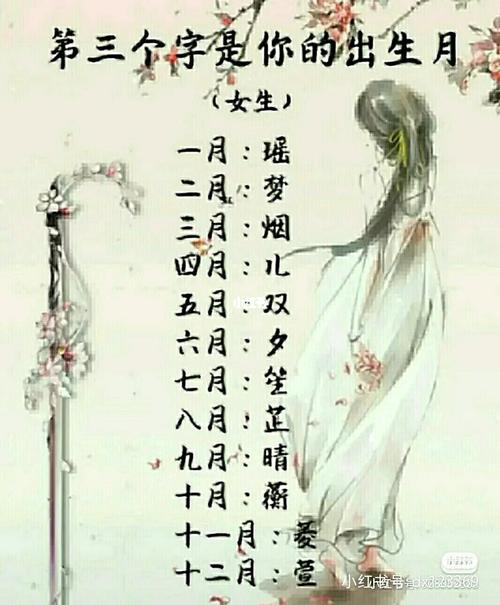 第三个字是你的出生月
（女生）
一月：瑶
二月：梦
三月：烟
四月：儿
五月：双
六月：夕
七月：笙
八月：芷
九月：晴
十月：蘅
十一月：菱
十二月：萱
小红书号